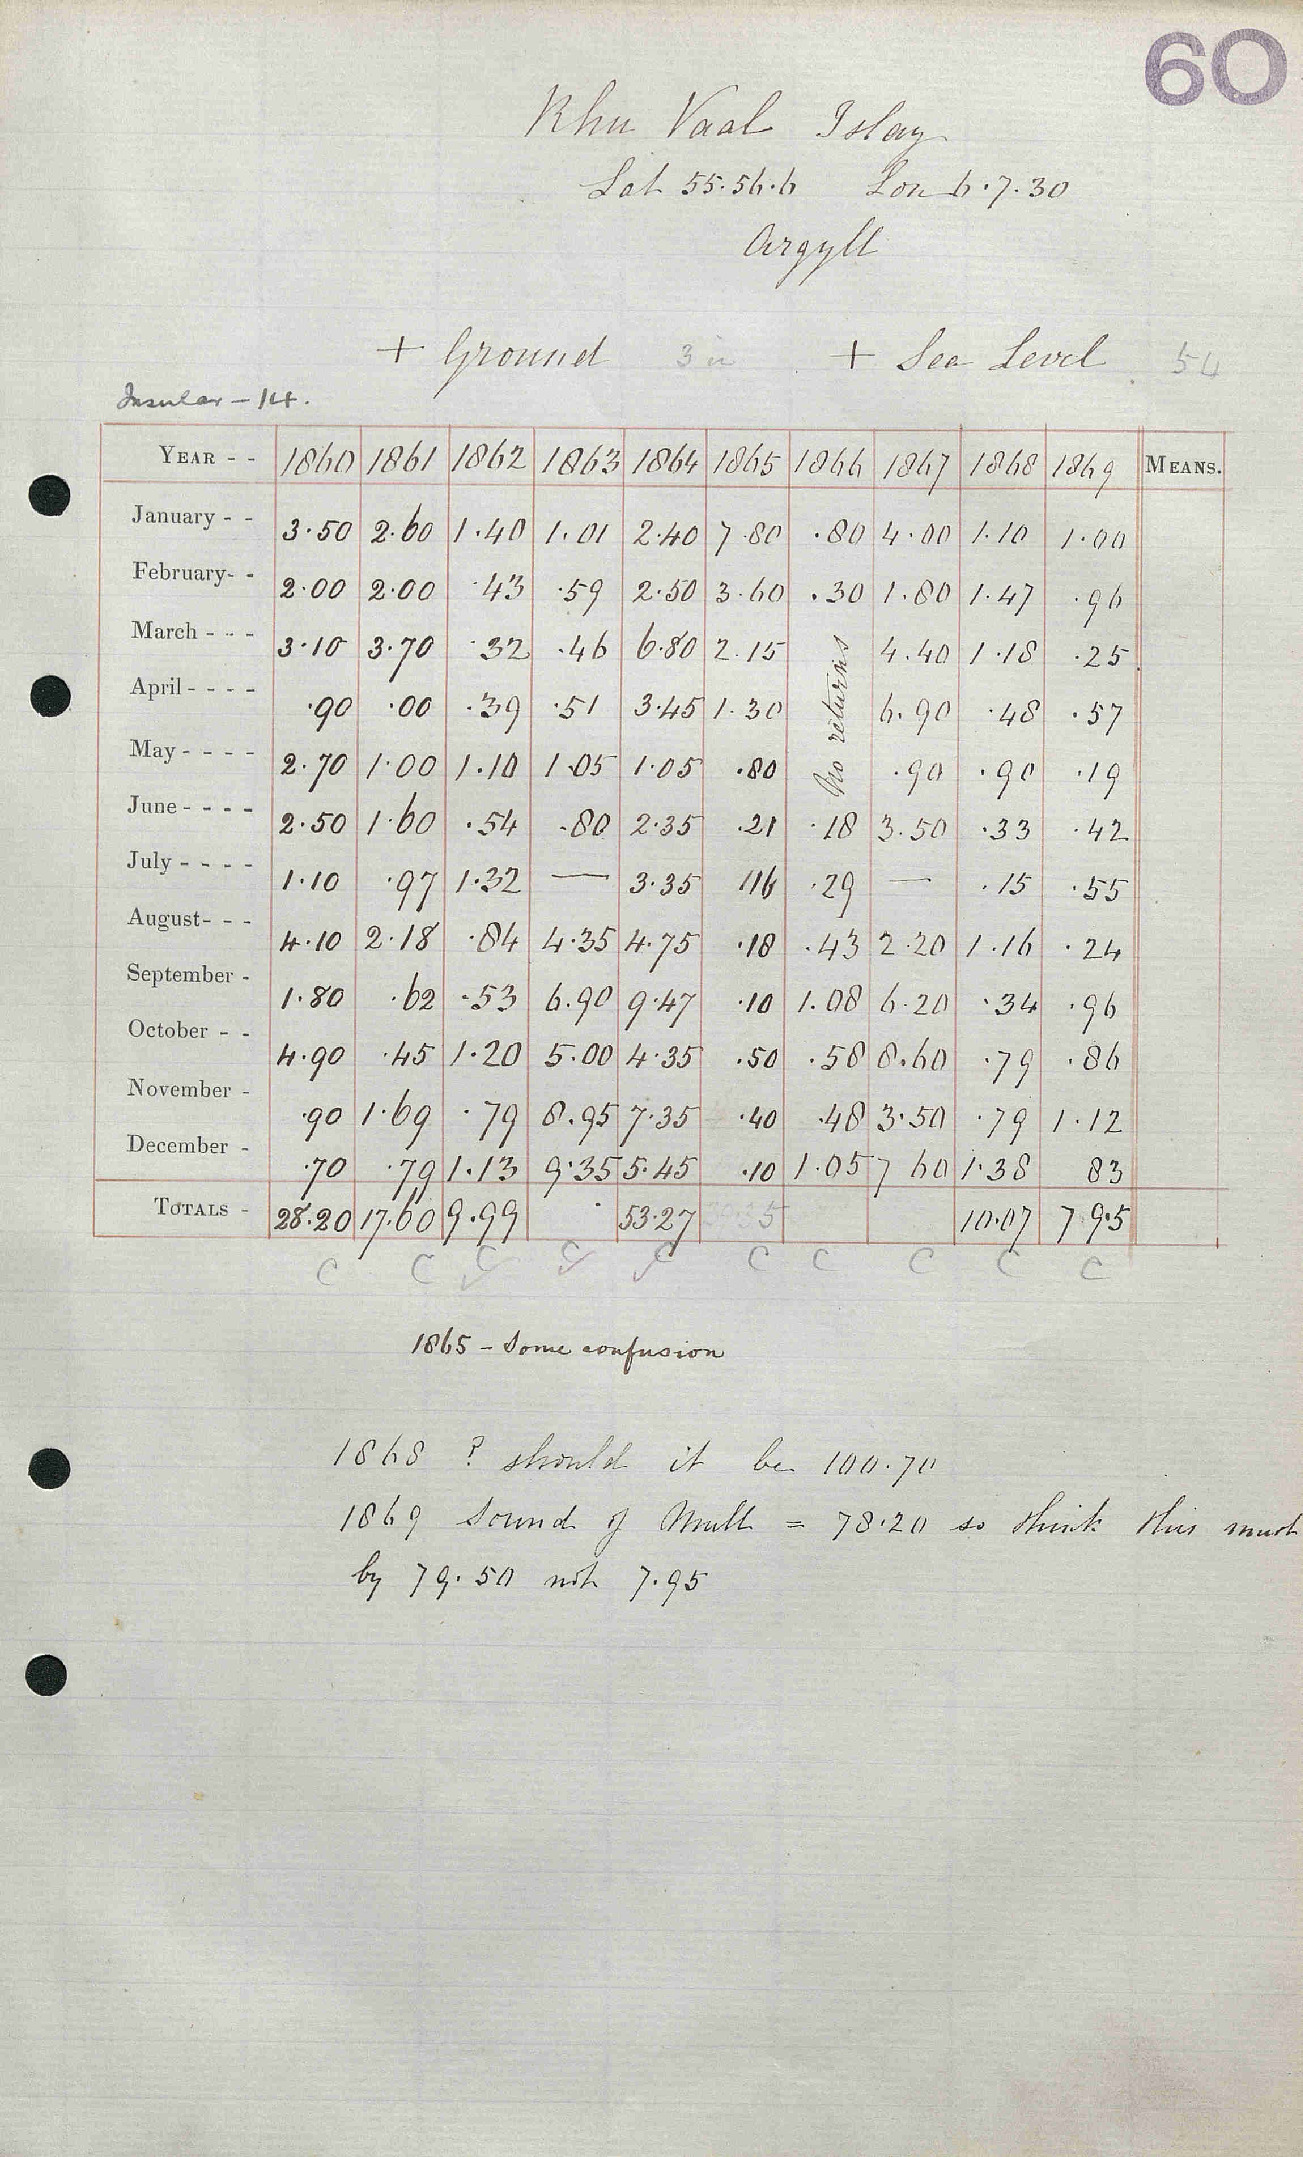 60
Rhu Vaal Islay
Lat 55.56.6 Lon 6.7.30
Argyll
+ Ground 3 in + Sea Level 54
Insular - 14.
YEAR - - 1860 1861 1862 1863 1864 1865 1866 1867 1868 1869 MEANS.
January - - 3.50 2.60 1.40 1.01 2.40 7.80 .80 4.00 1.10 1.00
February- - 2.00 2.00 .43 .59 2.50 3.60 .30 1.80 1.47 .96
March - - - 3.10 3.70 .32 .46 6.80 2.15 4.40 1.18 .25
No returns
April - - - - .90 .00 .39 .51 3.45 1.30 6.90 .48 .57
May - - - - 2.70 1.00 1.10 1.05 1.05 .80 .90 .90 .19
June - - - - 2.50 1.60 .54 .80 2.35 .21 .18 3.50 .33 .42
July - - - - 1.10 .97 1.32 — 3.35 116 .29 — .15 .55
August- - - 4.10 2.18 .84 4.35 4.75 .18 .43 2.20 1.16 .24
September - 1.80 .62 .53 6.90 9.47 .10 1.08 6.20 .34 .96
October - - 4.90 .45 1.20 5.00 4.35 .50 .58 8.60 .79 .86
November - .90 1.69 .79 8.95 7.35 .40 .48 3.50 .79 1.12
December - .70 .79 1.13 9.35 5.45 .10 1.05 7 60 1.38 83
TOTALS - 28.20 17.60 9.99 53.27 10.07 7.95
C C C C C C C C C C
1865 - Some confusion
1868 ? should it be 100.70
1869 Sound of Mull = 78.20 so think this must
by 79.50 not 7.95